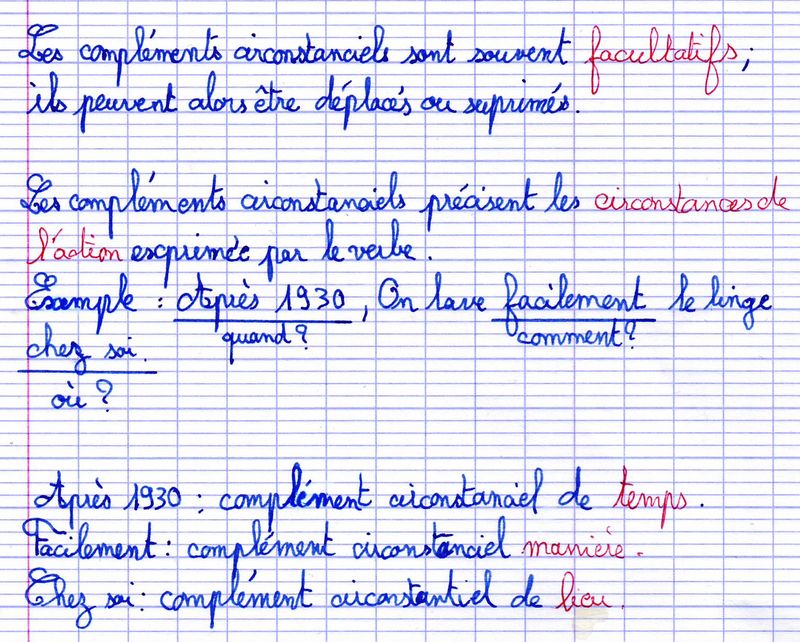 Les compléments circonstanciels sont souvent facultatifs ;
ils peuvent alors être déplacés ou suprimés.
Les compléments circonstanciels précisent les circonstances de
l'action exprimée par le verbe.
Exemple : Après 1930, On lave facilement le linge
quand ? comment ?
chez soi.
où ?
Après 1930 : complément circonstanciel de temps.
Facilement : complément circonstanciel manière.
Chez soi : complément circonstantiel de lieu.